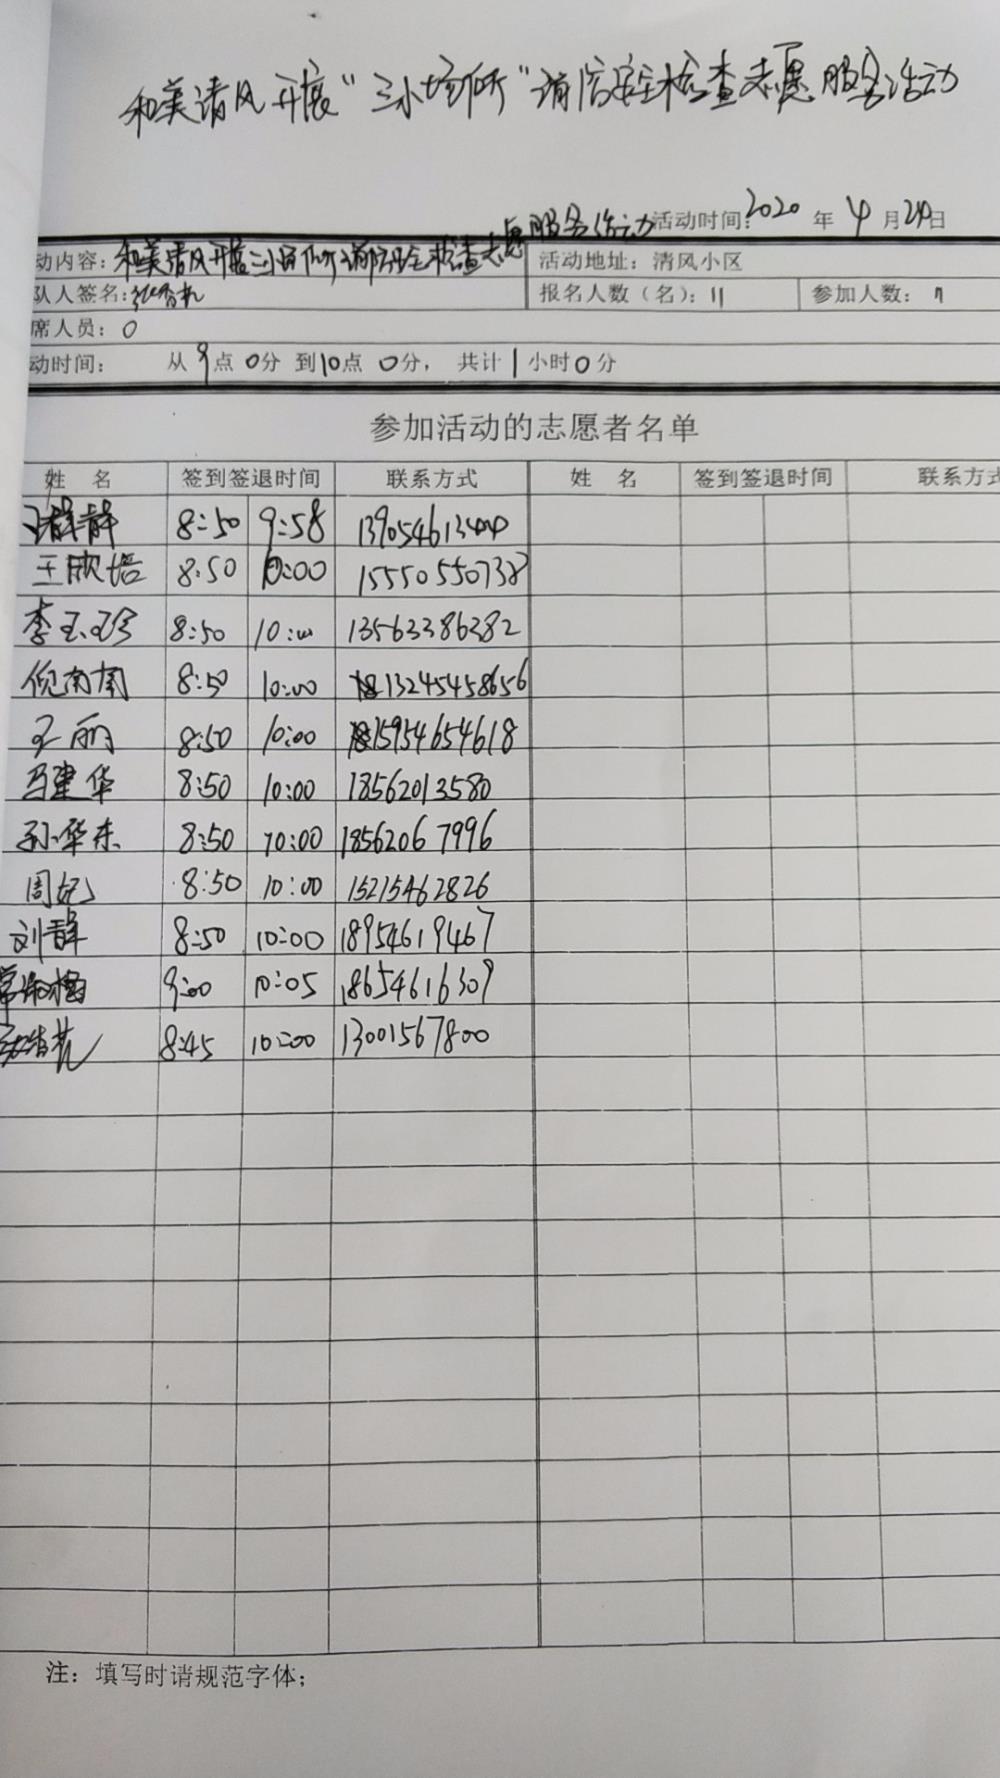 和美清风开展“三小场所”消防安全检查志愿服务活动
活动时间:2020年4月24日
动内容:和美清风开展三小场所消防安全检查志愿服务活动 活动地址:清风小区
队人签名: 报名人数(名):11 参加人数:11
席人员:0
动时间: 从9点0分到10点0分,共计1小时0分
参加活动的志愿者名单
姓 名 签到签退时间 联系方式 姓 名 签到签退时间 联系方式
静静 8:50 9:58 13905461344
王欣培 8:50 10:00 15550550738
李玉珍 8:50 10:00 13563386282
倪南南 8:50 10:00 13245458656
王丽 8:50 10:00 15954654618
马建华 8:50 10:00 18562013580
孙华东 8:50 10:00 18562067996
周妃 8:50 10:00 15215462826
刘静 8:50 10:00 18954619467
常 梅 9:00 10:05 18654616309
8:45 10:00 13001567800
注:填写时请规范字体;